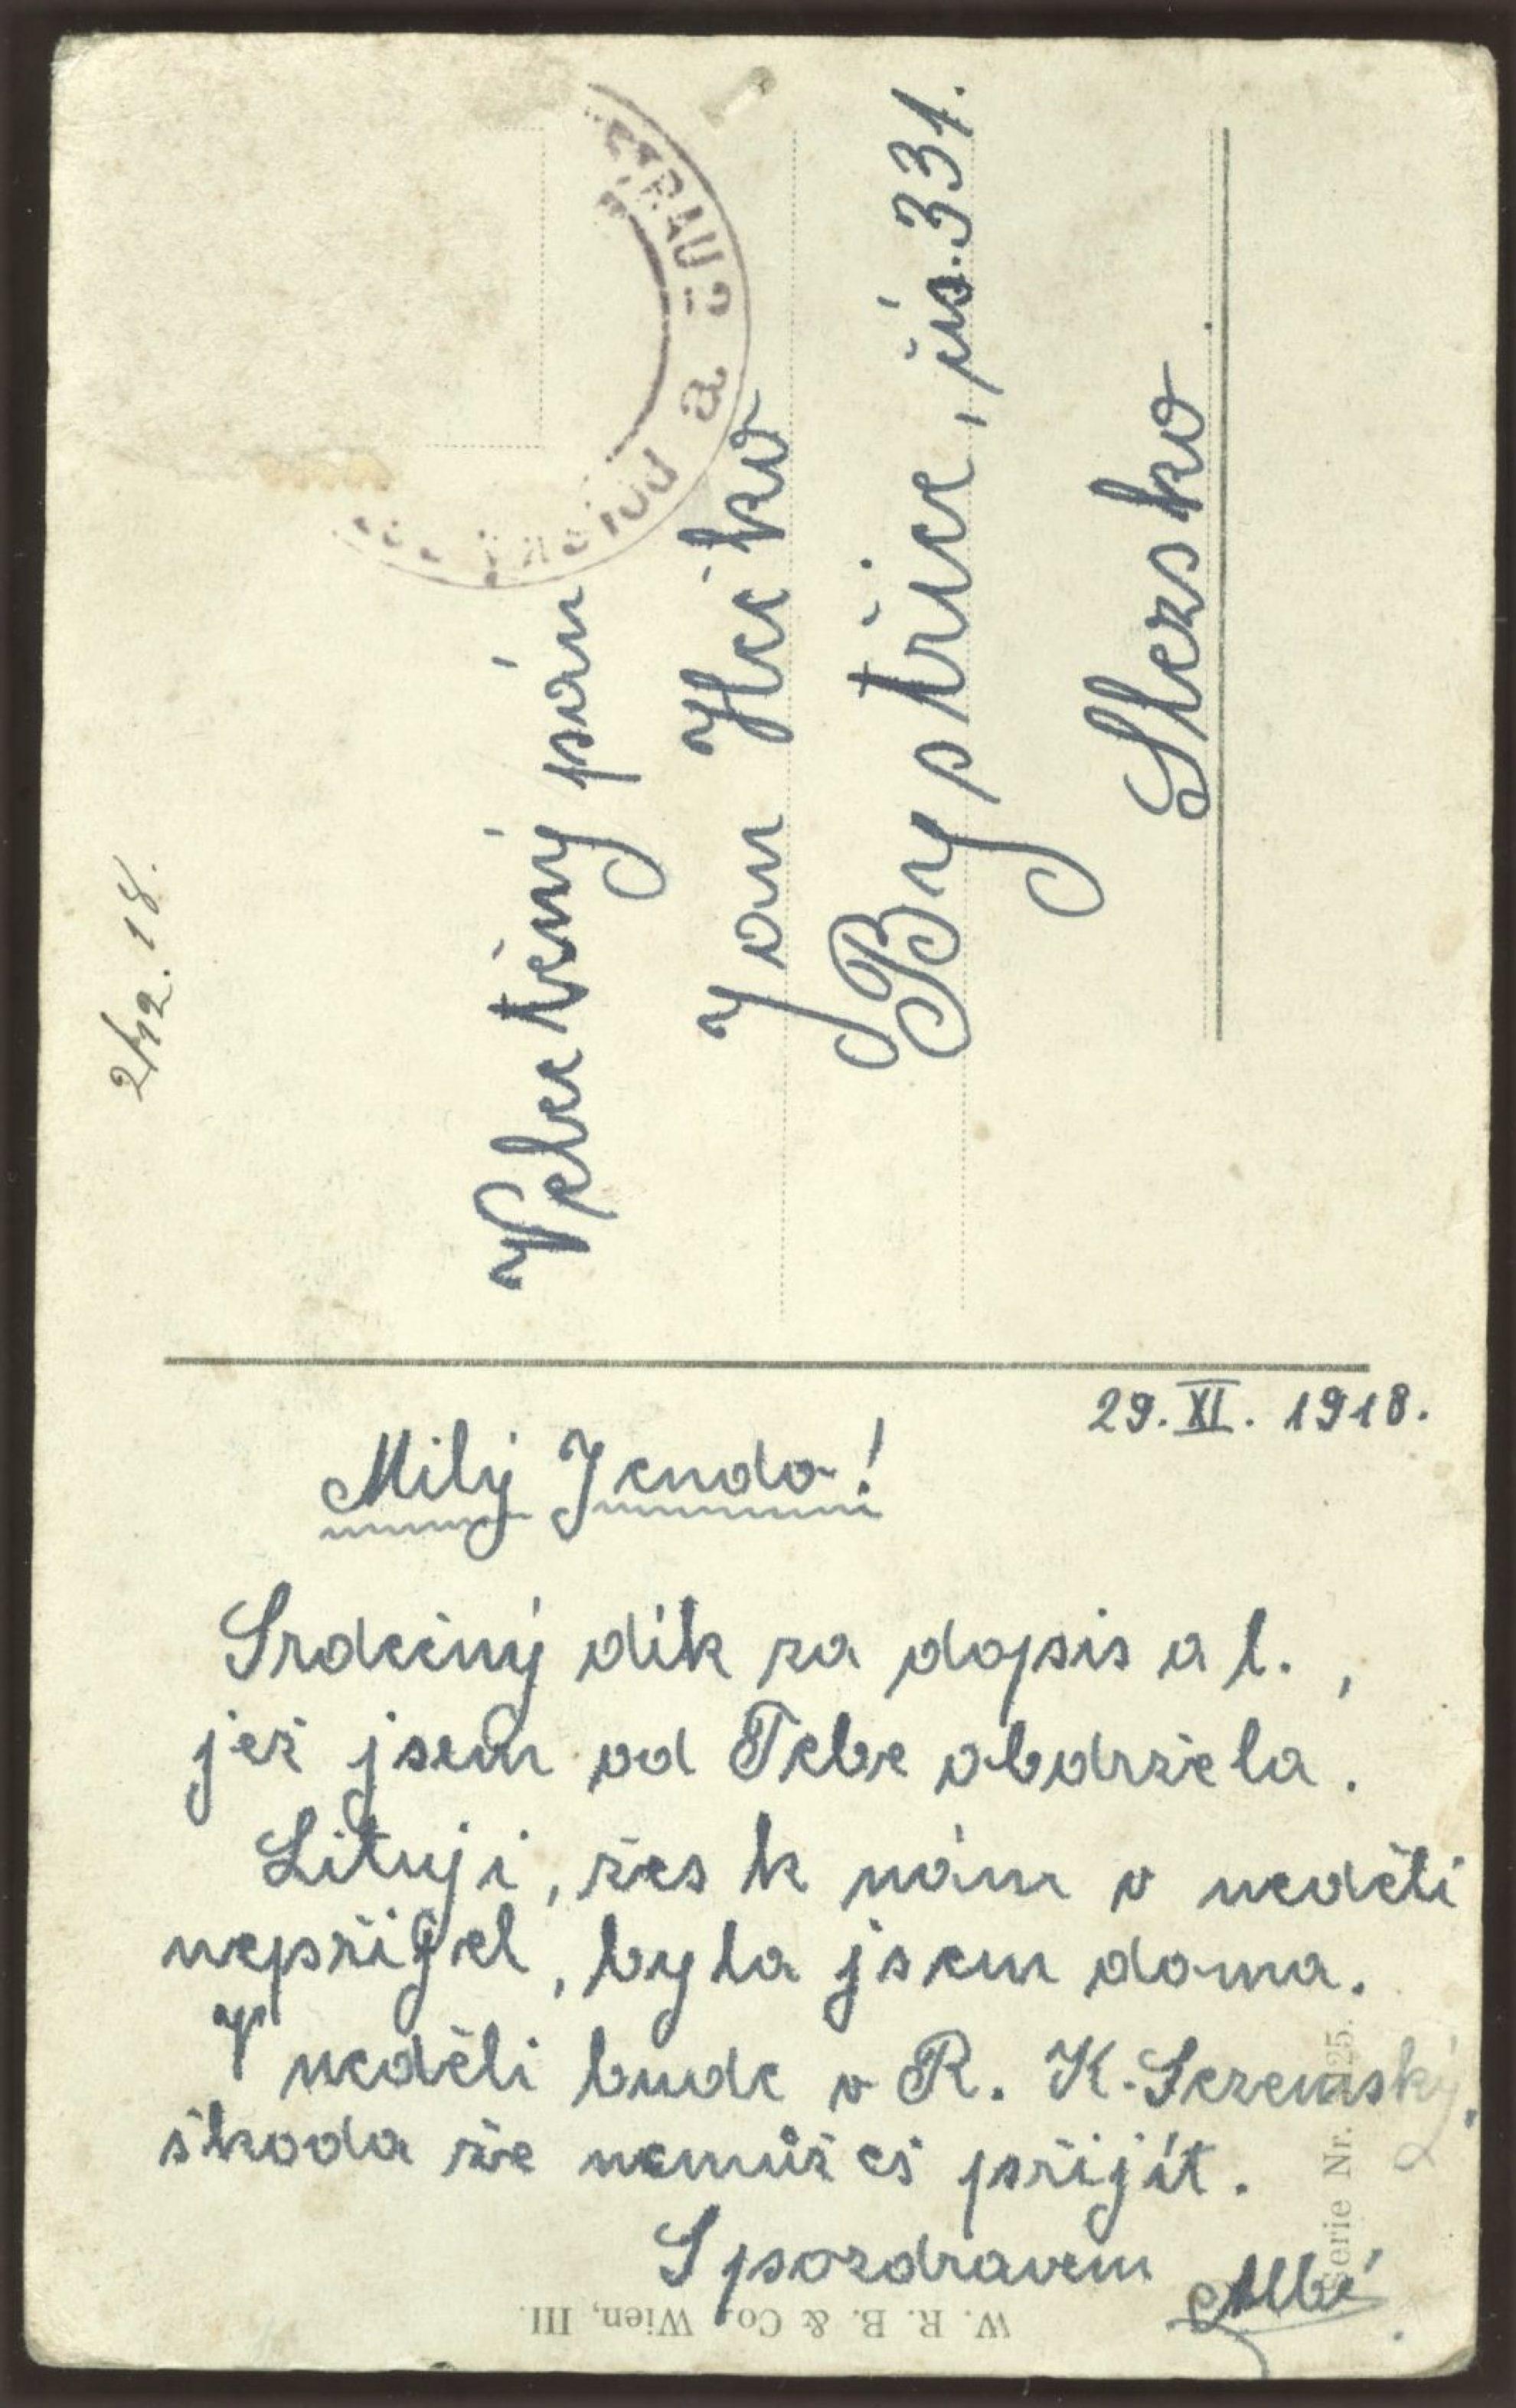 29. XI. 1918.
Milý Jendo!
Srdečný dík za dopis a l. ,
jež jsem od Tebe obdržela.
Lituji, žes k nám v neděli
nepřijel, byla jsem doma.
V neděli bude v R. K. Sezemský,
škoda že nemůžeš přijít.
S pozdravem
2/12. 18.
Velectěný pán
Jan
Bystřice, čís. 331.
Slezsko
W. R. B. & Co, Wien, III.
Serie Nr.